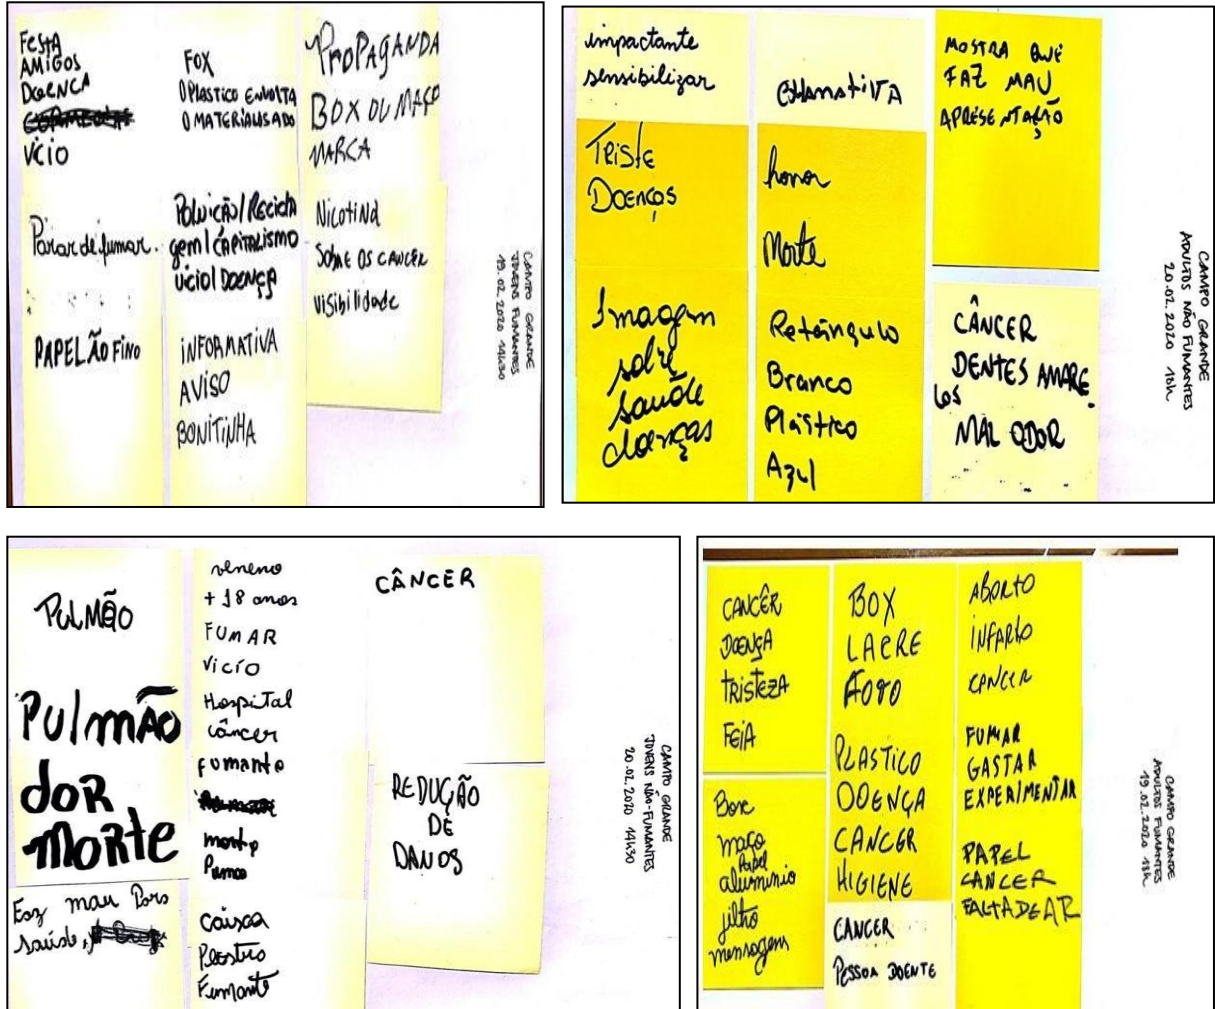 FESTA
AMIGOS
DOENÇA
VÍCIO
Parar de fumar.
PAPELÃO FINO
FOX
O PLASTICO ENVOLTA
O MATERIAL USADO
POLUIÇÃO / RECICLA
GEM / CAPITALISMO
VICIO / DOENÇA
INFORMATIVA
AVISO
BONITINHA
PROPAGANDA
BOX OU MAÇO
MARCA
NicotiNa
SOBRE OS CANCER
visibilidade
CAMPO GRANDE
JOVENS FUMANTES
19.02.2020 14h30
impactante
sensibilizar
TRISTE
DOENÇAS
Imagem
sobre
saúde
doenças
horror
Morte
Retângulo
Branco
Plástico
Azul
MOSTRA QUE
FAZ MAU
APRESENTAÇÃO
CÂNCER
DENTES AMARE.
LOS
MAL ODOR
CAMPO GRANDE
ADULTOS NÃO FUMANTES
20.02.2020 18h
PULMÃO
PulmÃo
doR
morte
Faz mau Para
saúde,
veneno
+ 18 anos
FUMAR
Vicío
Hospital
câncer
fumante
morte
caixa
Plastico
Fumante
CÂNCER
REDUÇÃO
DE
DANOS
CAMPO GRANDE
JOVENS NÃO-FUMANTES
20.02.2020 14h30
CANCÊR
DOENÇA
TRISTEZA
FEIA
Box
maço
Papel
aluminio
filtro
mensagem
BOX
LACRE
FOTO
PLASTICO
DOENÇA
CANCER
HIGIENE
CANCER
PESSOA DOENTE
ABORTO
INFARTO
CANCER
FUMAR
GASTAR
EXPERIMENTAR
PAPEL
CANCER
FALTA DE AR
CAMPO GRANDE
ADULTOS FUMANTES
19.02.2020 18h